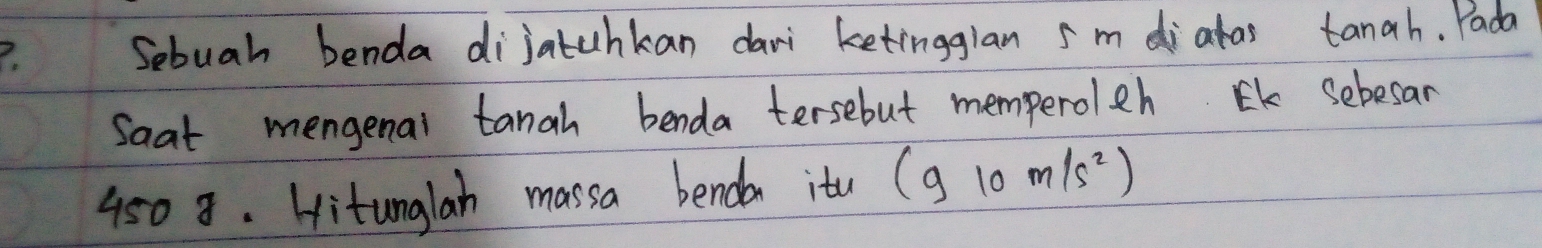 ?. Sebuah benda dijatuhkan dari ketinggian 5 m di atas tanah. Pada
Saat mengenai tanah benda tersebut memperoleh Ek sebesar
450 J. Hitunglah massa benda itu (g 10 m/s²)